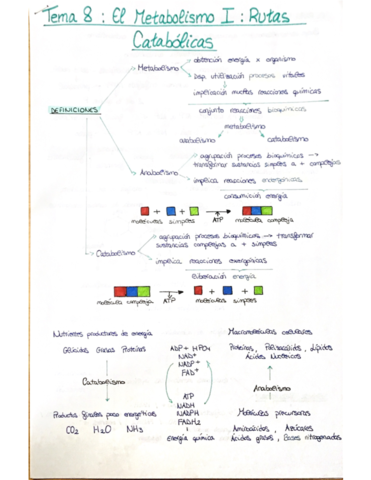 Tema 8 : El Metabolismo I : Rutas
Catabólicas
DEFINICIONES
Metabolismo
obtención energía x organismo
posp. utilización procesos vitales
implicación muchas reacciones químicas
conjunto reacciones bioquímicas
metabolismo
anabolismo catabolismo
Anabolismo
agrupación procesos bioquímicos →
transformar sustancias simples a + complejas
implica reacciones endergónicas
consumición energía
+ + → ATP
moléculas simples molécula compleja
Catabolismo
agrupación procesos bioquímicos → transformar
sustancias complejas a + simples
implica reacciones exergónicas
liberación energía
→ ATP + +
molécula compleja moléculas simples
Nutrientes productores de energía
Glúcidos Grasas Proteínas
Catabolismo
Productos finales poco energéticos
CO2 H2O NH3
ADP + HPO4
NAD+
NADP+
FAD+
ATP
NADH
NADPH
FADH2
Energía química
Macromoléculas celulares
Proteínas, Polisacáridos, Lípidos
Ácidos Nucleicos
Anabolismo
Moléculas precursoras
Aminoácidos, Azúcares
Ácidos grasos, Bases nitrogenadas